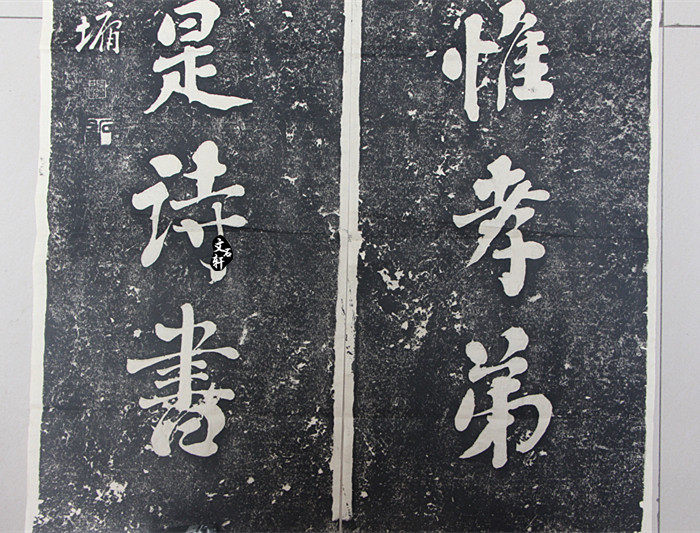 惟孝弟
是詩書
墉
文石軒